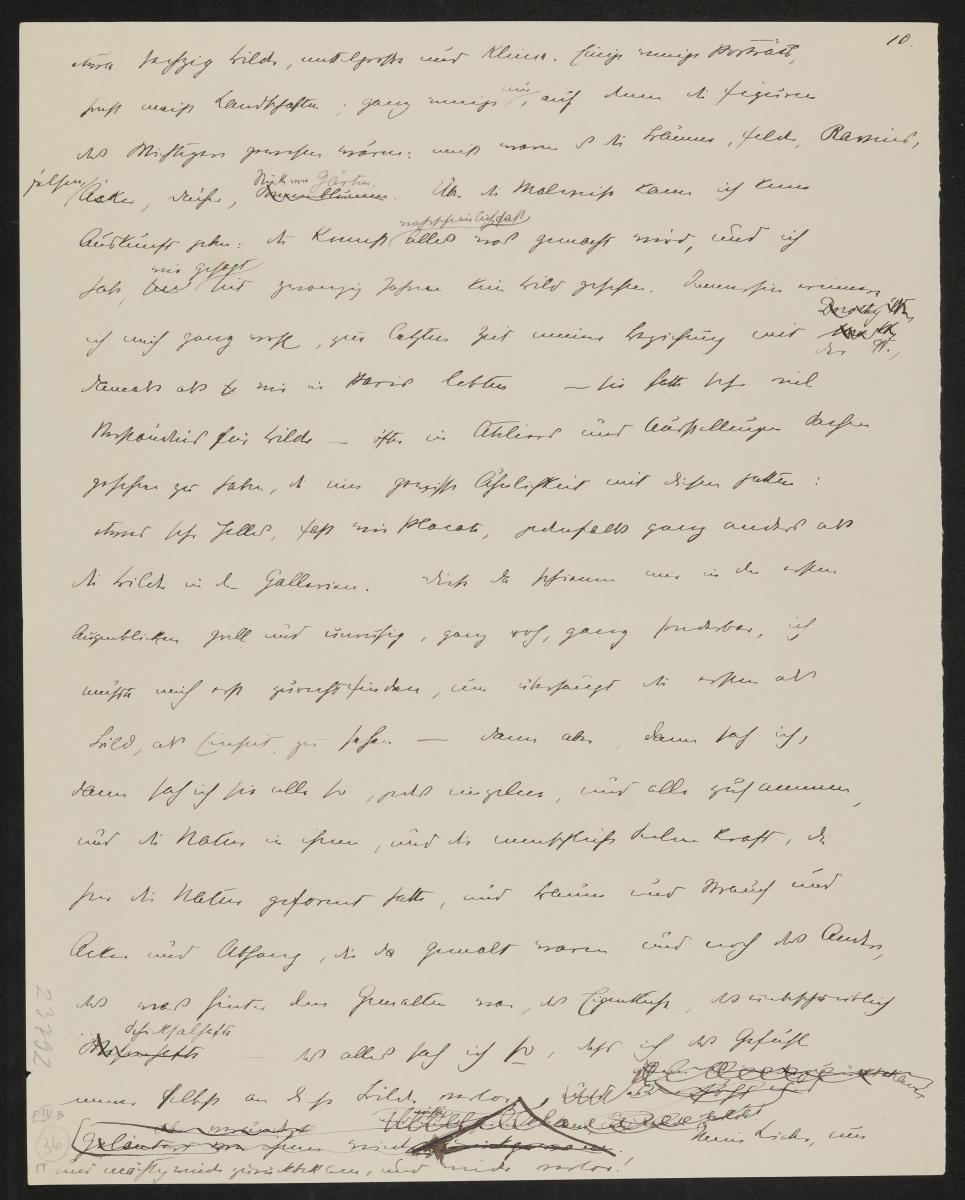 10.
etwa sechzig Bilder, mittelgroße und kleine. Einige wenige Porträts,
sonst meist Landschaften; ganz wenige nur, auf denen die Figuren
das Wichtigere gewesen wären: meist waren es die Bäume, Felder, Ravins,
Felsen, Äcker, Dächer, Stücke von Gärten. Über die Malweise kann ich keine
Auskunft geben: die Kunst wahrscheinlich daß alles was gemacht wird, und ich
habe, wie gesagt seit zwanzig Jahren kein Bild gesehen. Immerhin erinnere
ich mich ganz wohl, zur letzten Zeit meiner Beziehung mit der W.,
damals als wir in Paris lebten — sie hatte sehr viel
Verständnis für Bilder — öfter in Ateliers und Ausstellungen Sachen
gesehen zu haben, die eine gewisse Ähnlichkeit mit diesen hatten:
etwas sehr Helles, fast wie Placate, jedenfalls ganz anders als
die Bilder in den Gallerien. Diese da schienen mir in den ersten
Augenblicken grell und unruhig, ganz roh, ganz sonderbar, ich
mußte mich erst zurechtfinden, um überhaupt die ersten als
Bild, als Einheit, zu sehen — dann aber, dann sah ich,
dann sah ich sie alle so, jedes einzelne, und alle zusammen,
und die Natur in ihnen, und die menschliche Seelenkraft, die
hier die Natur geformt hatte, und Baum und Strauch und
Acker und Abhang, die da gemalt waren und noch das Andre,
das was hinter dem Gemalten war, das Eigentliche, das unbeschreiblich
Schicksalhafte — das alles sah ich so, daß ich das Gefühl
meiner selbst an diese Bilder verlor,
und mächtig wieder zurückbekam, und wieder verlor!
Mein Lieber, um
23792
E IV B
36